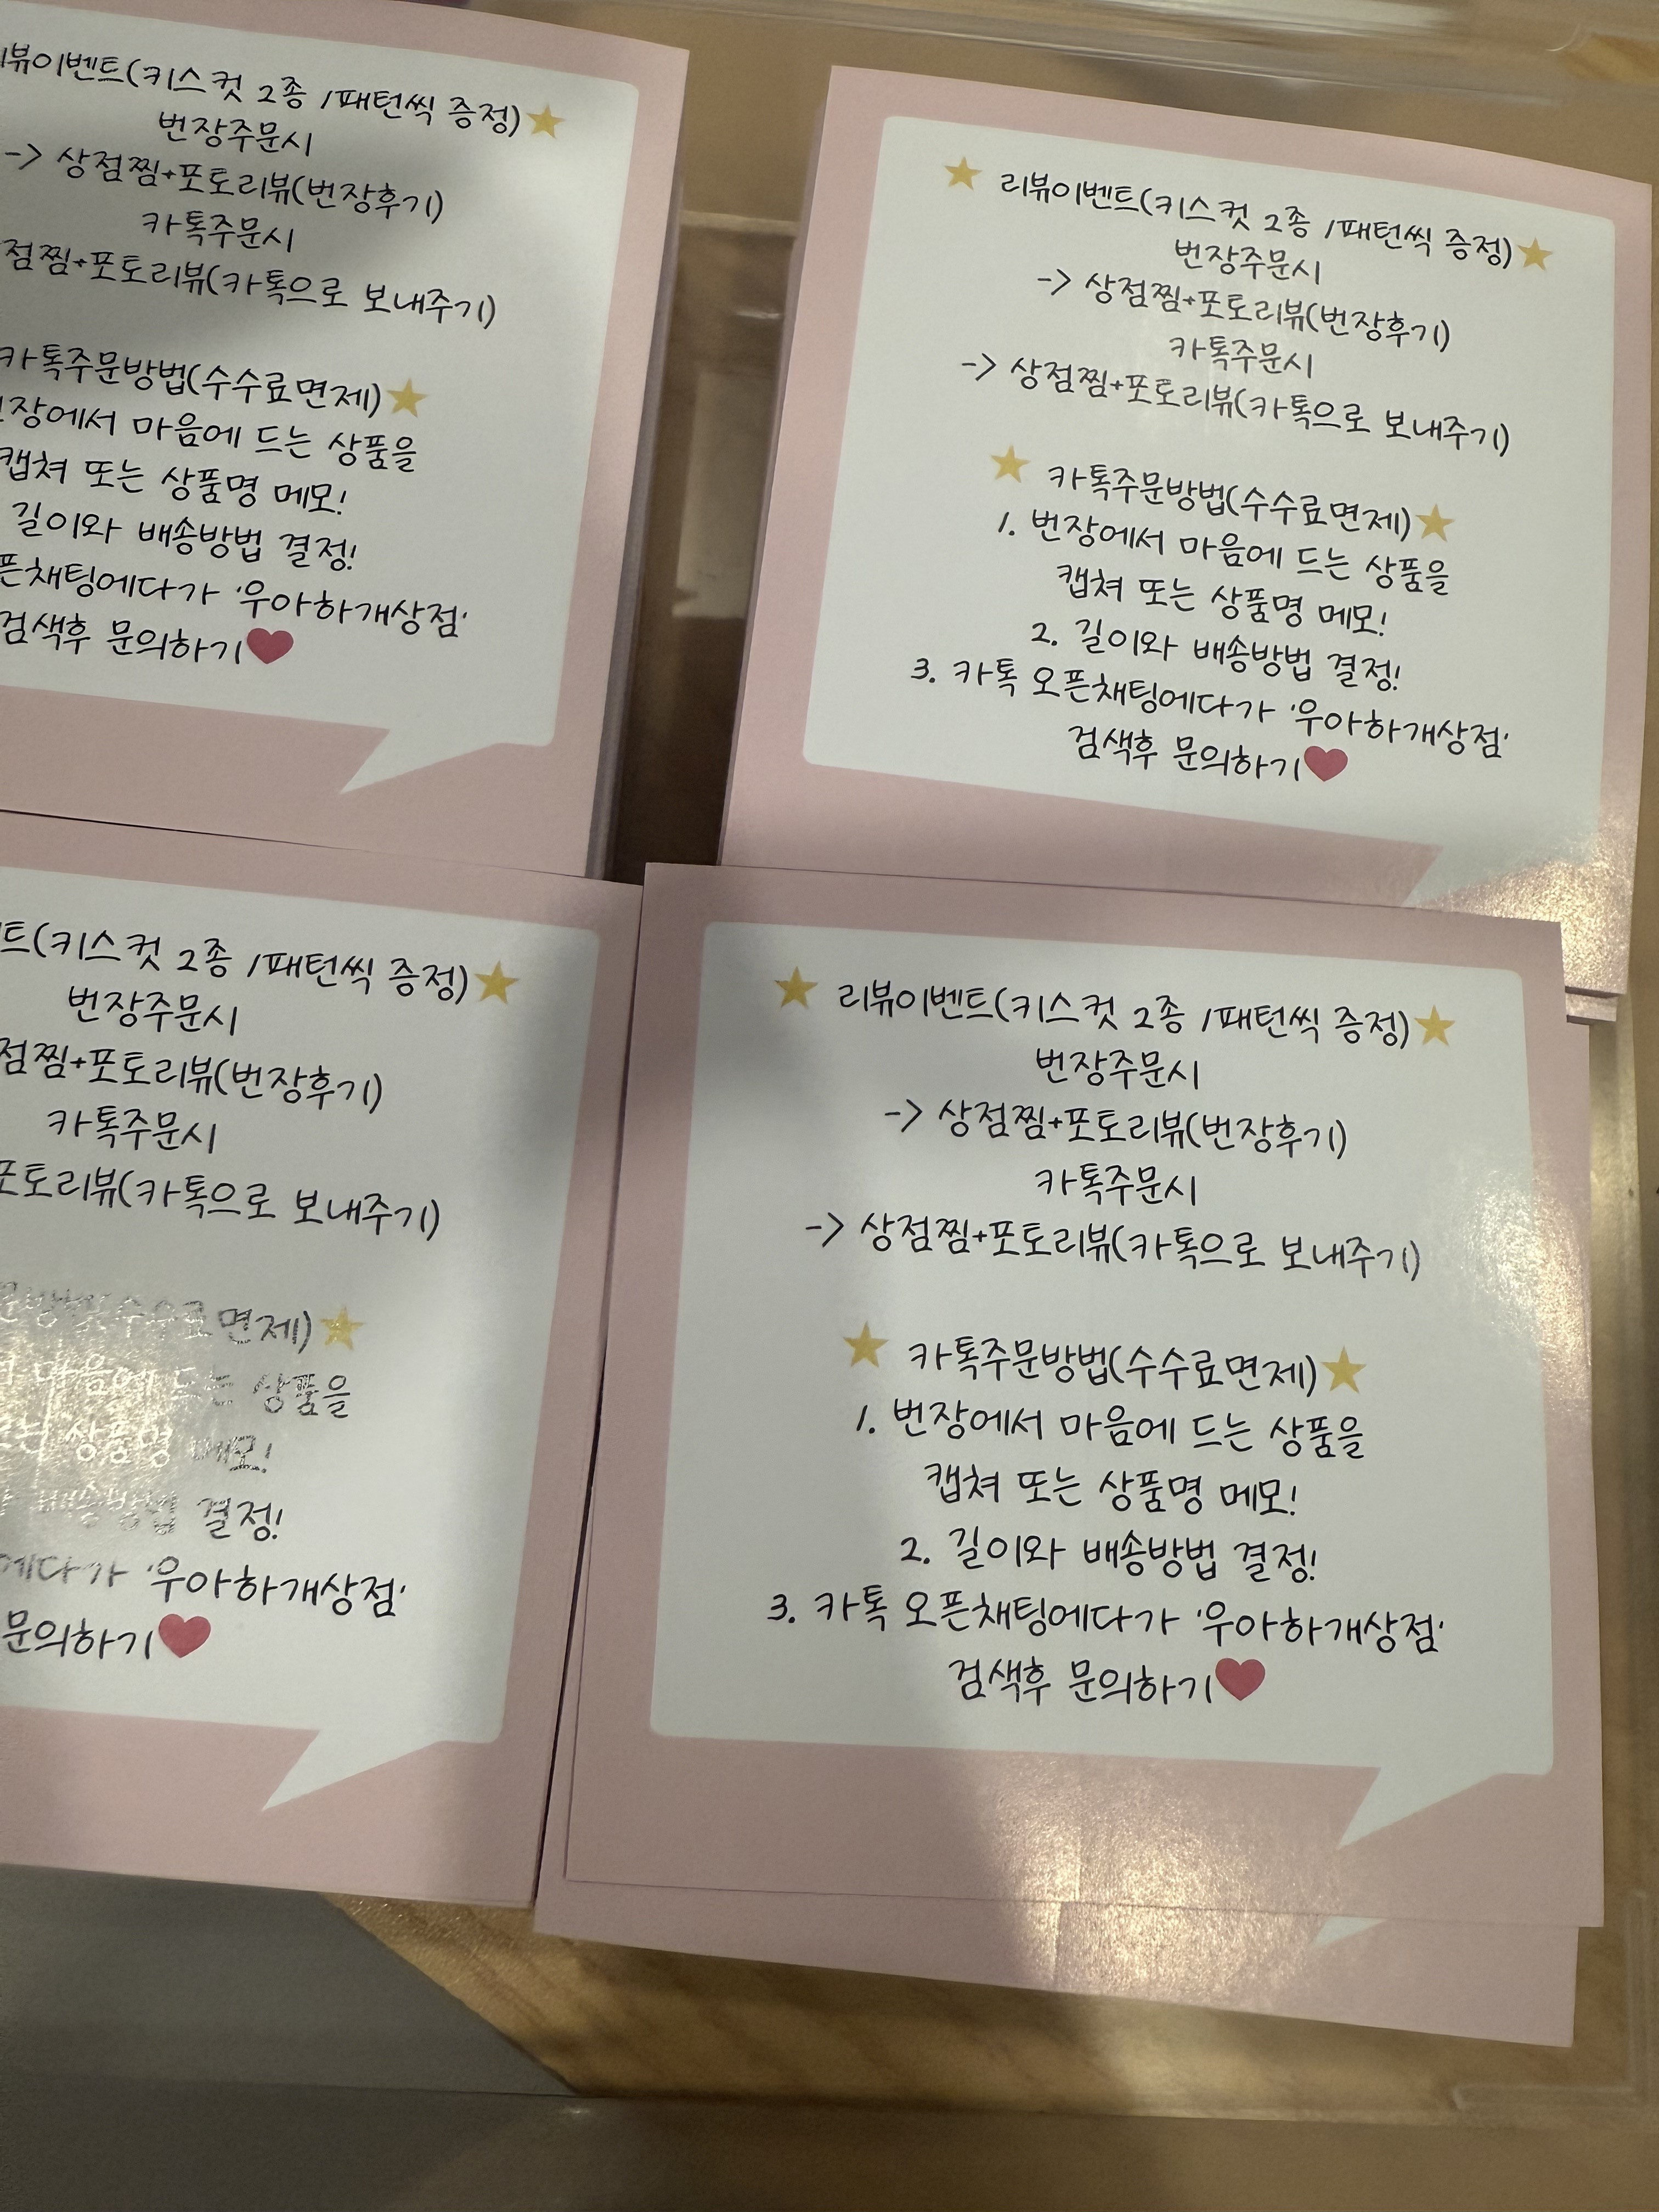 리뷰이벤트(키스컷 2종 1패턴씩 증정)
번장주문시
-> 상점찜+포토리뷰(번장후기)
카톡주문시
점찜+포토리뷰(카톡으로 보내주기)
카톡주문방법(수수료면제)
장에서 마음에 드는 상품을
캡쳐 또는 상품명 메모!
길이와 배송방법 결정!
픈채팅에다가 '우아하개상점'
검색후 문의하기
리뷰이벤트(키스컷 2종 1패턴씩 증정)
번장주문시
-> 상점찜+포토리뷰(번장후기)
카톡주문시
-> 상점찜+포토리뷰(카톡으로 보내주기)
카톡주문방법(수수료면제)
1. 번장에서 마음에 드는 상품을
캡쳐 또는 상품명 메모!
2. 길이와 배송방법 결정!
3. 카톡 오픈채팅에다가 '우아하개상점'
검색후 문의하기
트(키스컷 2종 1패턴씩 증정)
번장주문시
점찜+포토리뷰(번장후기)
카톡주문시
포토리뷰(카톡으로 보내주기)
문방법(수수료면제)
마음에 드는 상품을
또는 상품명 메모!
배송방법 결정!
에다가 '우아하개상점'
문의하기
리뷰이벤트(키스컷 2종 1패턴씩 증정)
번장주문시
-> 상점찜+포토리뷰(번장후기)
카톡주문시
-> 상점찜+포토리뷰(카톡으로 보내주기)
카톡주문방법(수수료면제)
1. 번장에서 마음에 드는 상품을
캡쳐 또는 상품명 메모!
2. 길이와 배송방법 결정!
3. 카톡 오픈채팅에다가 '우아하개상점'
검색후 문의하기